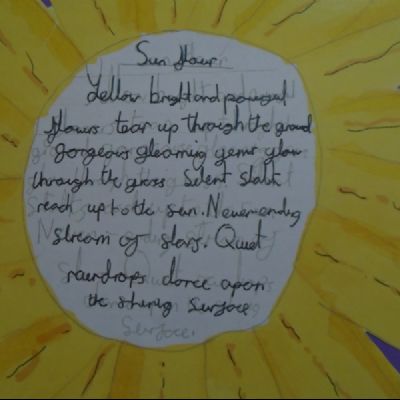 Sun flour
Yellow bright and powerful
flowers tear up through the ground
gorgeous gleaming gems glow
through the grass Silent stalks
reach up to the sun. Never ending
stream of stars. Quiet
raindrops dance apon
the shining surface
Surface.